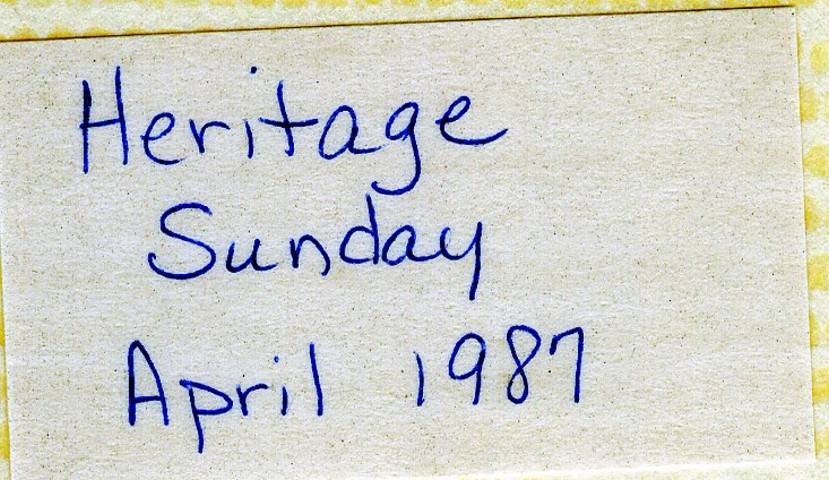 Heritage
Sunday
April 1987